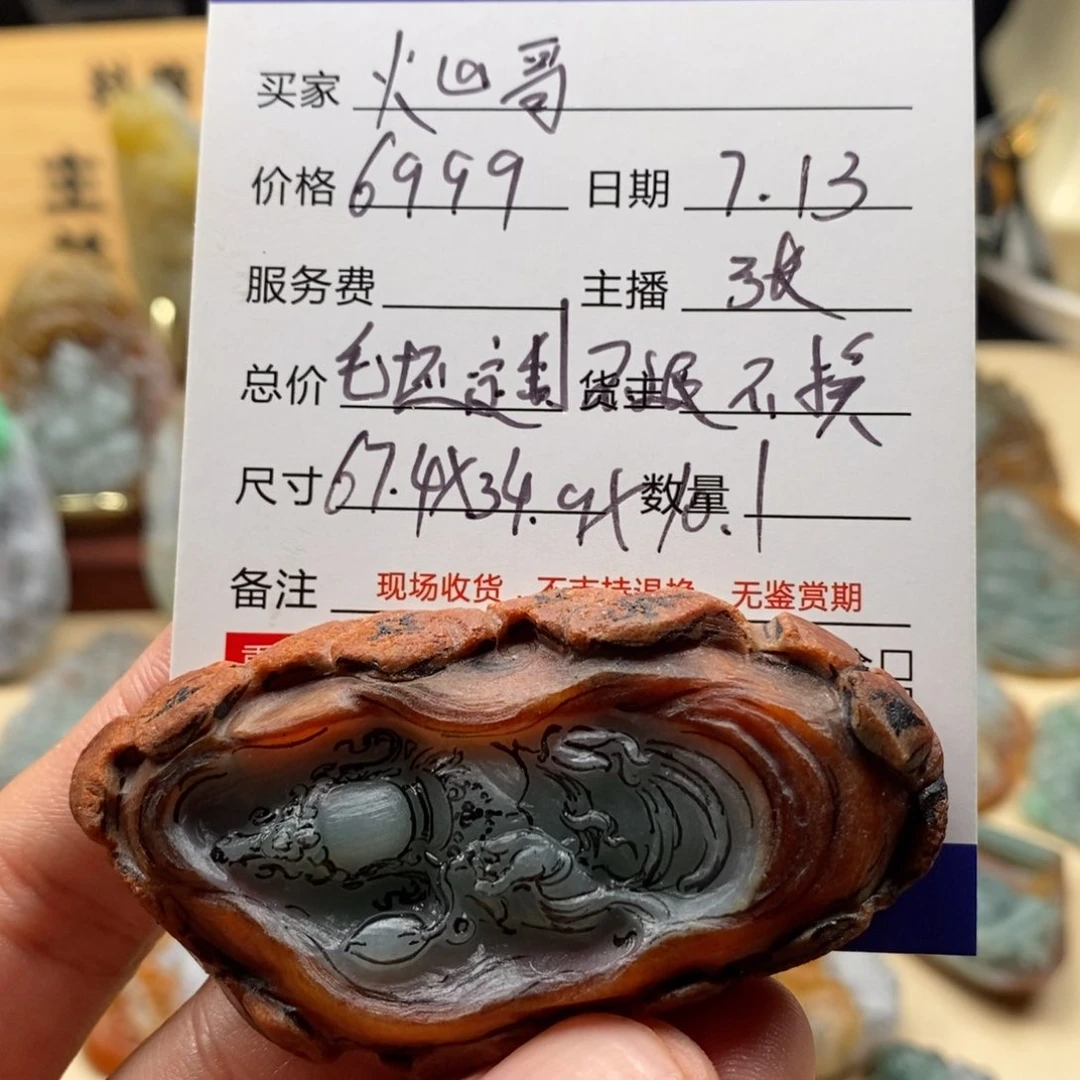 买家 火山哥
价格 6999 日期 7.13
服务费 主播
总价 毛坯定制 货主 不退不换
尺寸 67.4X34.9X10.1 数量
备注 现场收货,不支持退换,无鉴赏期
主